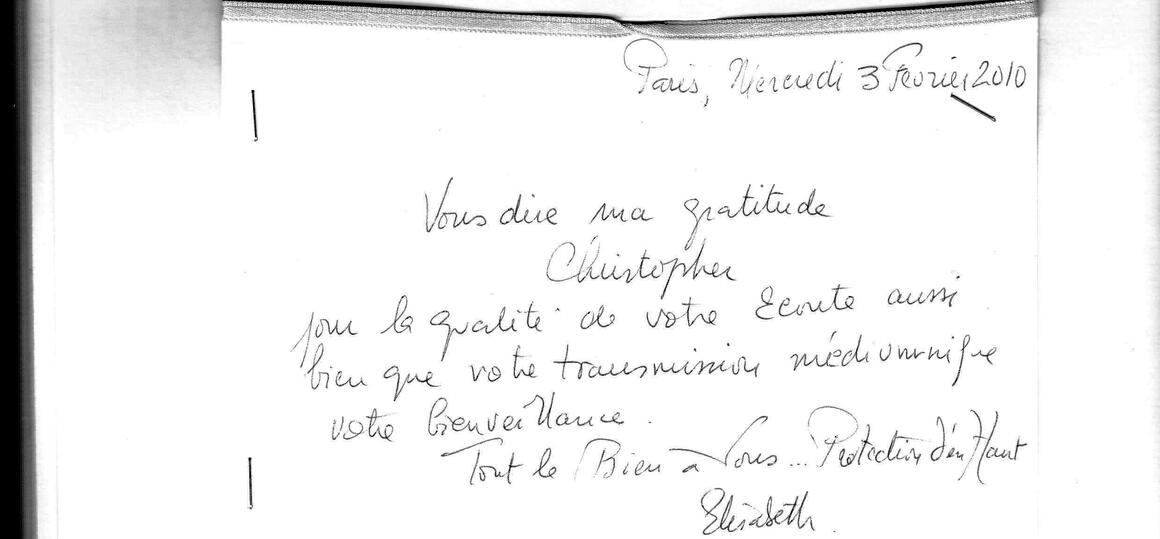 Paris, Mercredi 3 Février 2010
Vous dire ma gratitude
Christopher
pour la qualité de votre Ecoute aussi
bien que votre transmission médiumnique
votre bienveillance.
Tout le Bien à Vous... Protection d'en Haut
Elisabeth.